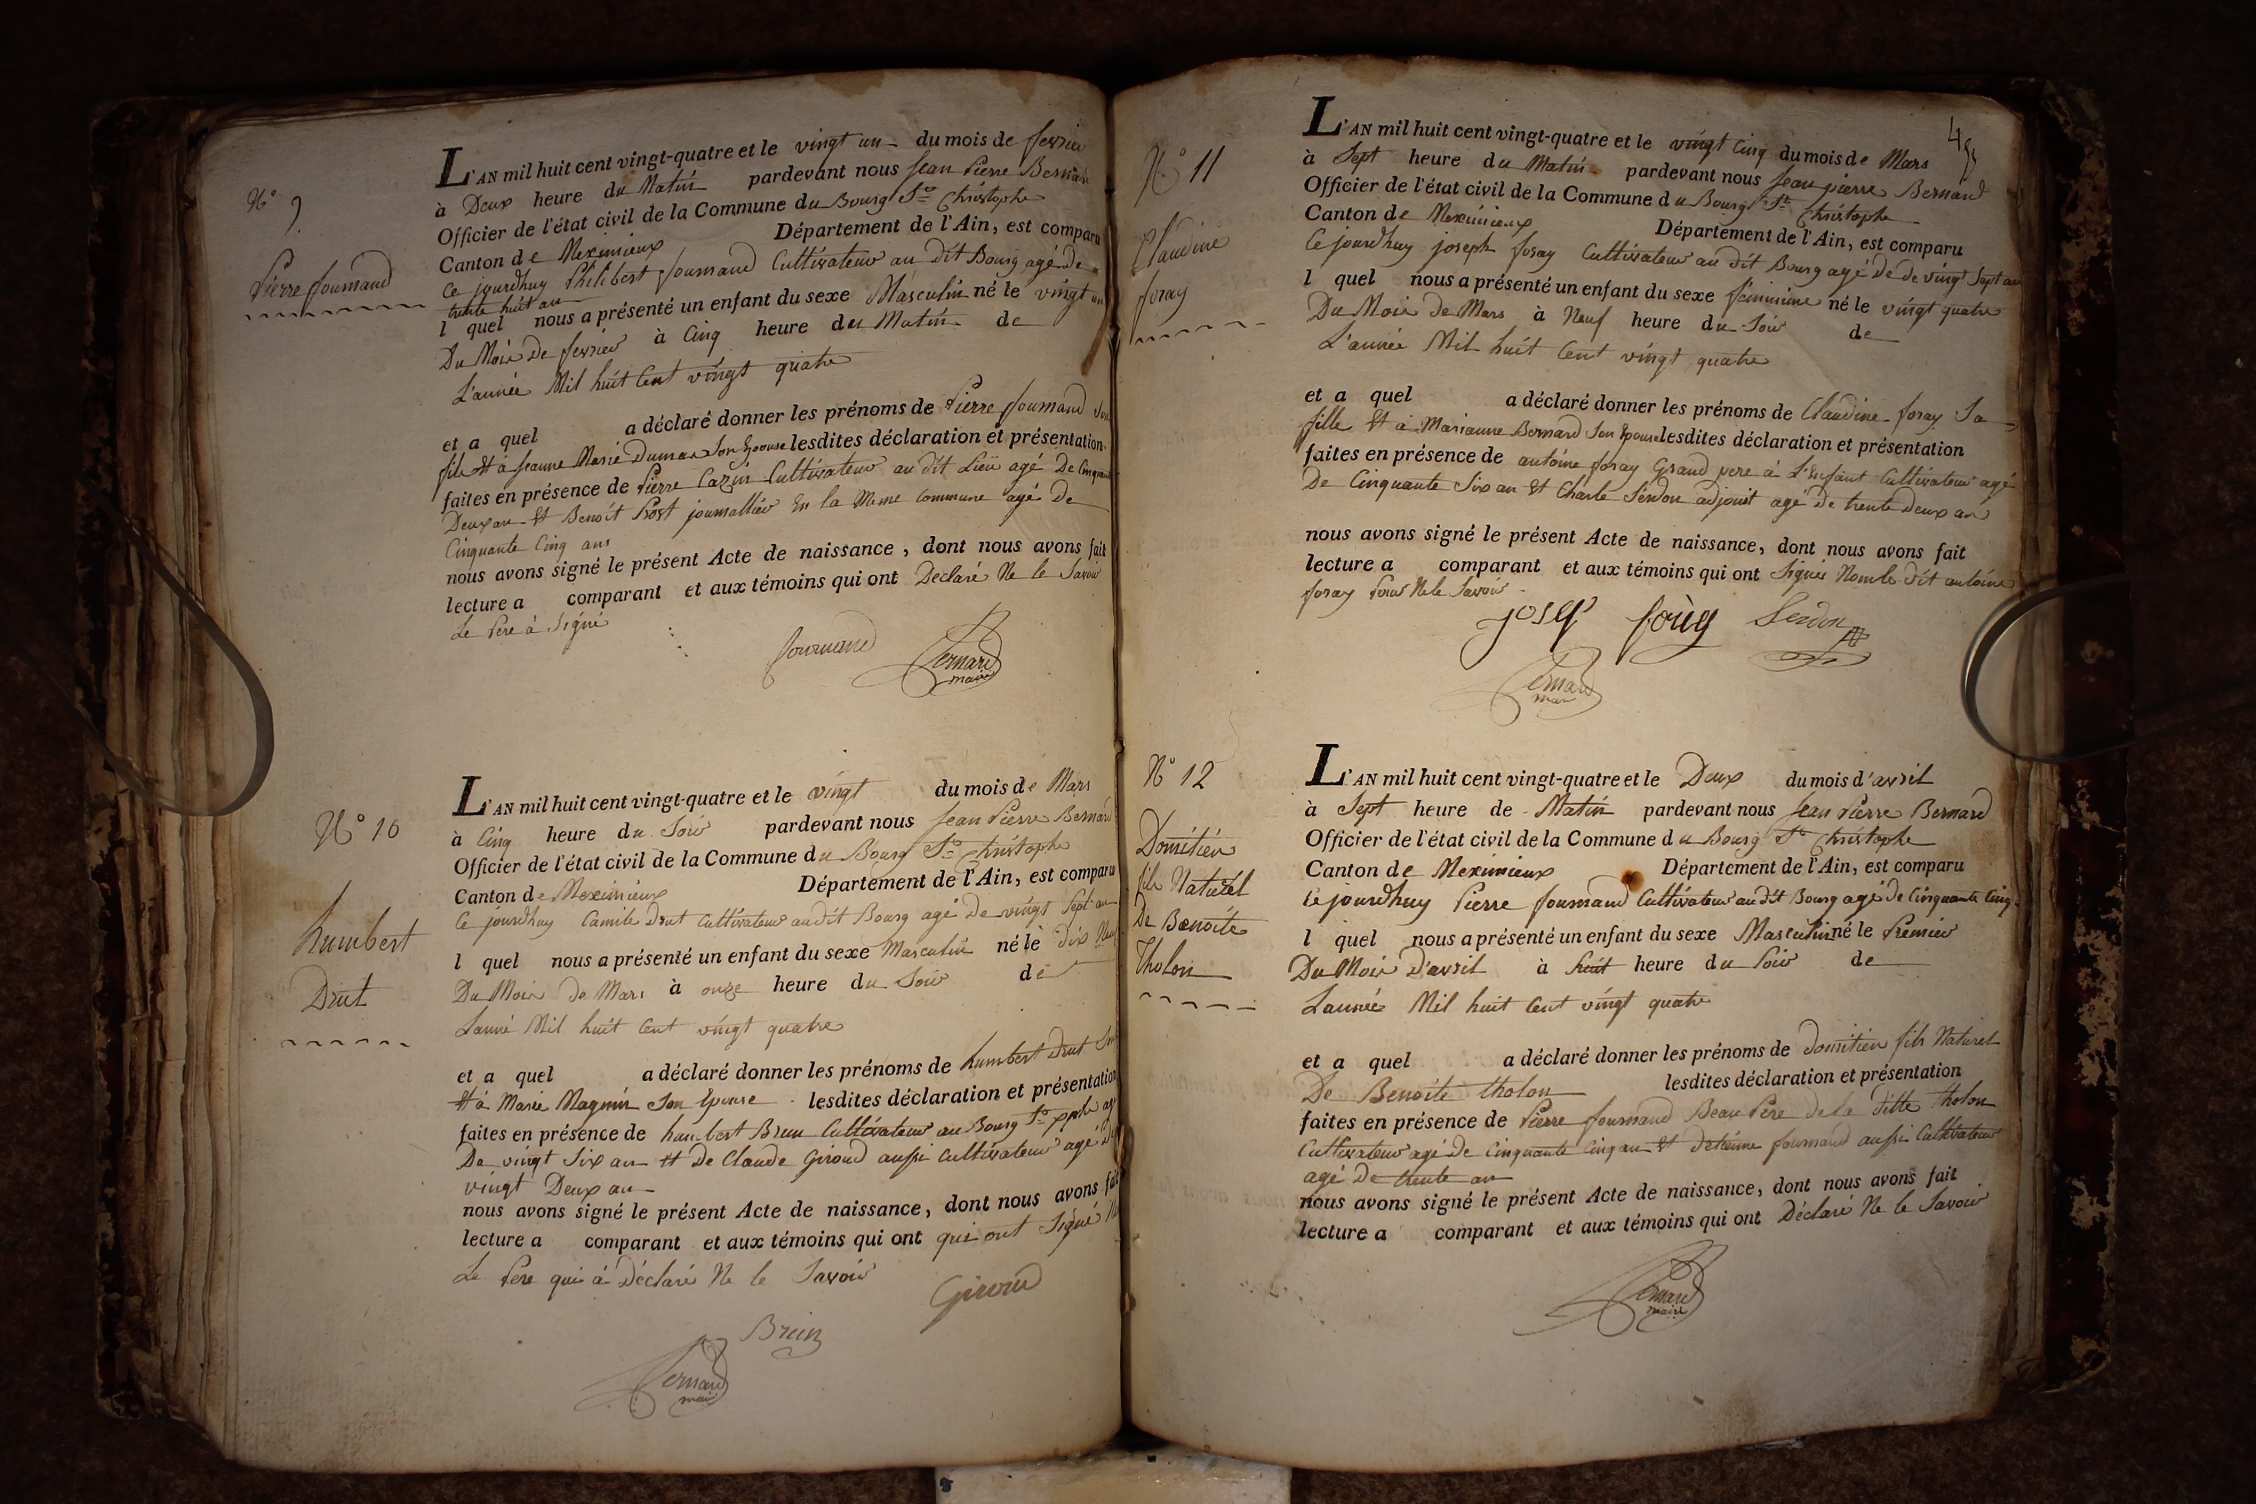 N° 9
Pierre fournand
L'AN mil huit cent vingt-quatre et le vingt un du mois de fevrier
à Deux heure du Matin pardevant nous Jean Pierre Bernard
Officier de l'état civil de la Commune du Bourg St Christophe
Canton de Meximieux Département de l'Ain, est comparu
Ce jourdhuy Philibert fournand Cultivateur au dit Bourg agé de
trente huit an
l quel nous a présenté un enfant du sexe Masculin né le vingt un
Du Mois De fevrier à Cinq heure du Matin de
L'année Mil huit Cent vingt quatre
et a quel a déclaré donner les prénoms de Pierre fournand Son
fils Et à Jeanne Marie Dumas Son Epouse lesdites déclaration et présentation
faites en présence de Pierre Cazin Cultivateur au dit Lieu agé De Cinquante
Deux an Et Benoit Prost journallier En la Meme Commune agé De
Cinquante Cinq ans
nous avons signé le présent Acte de naissance, dont nous avons fait
lecture a comparant et aux témoins qui ont Declaré Ne le Savoir
Le Pere à Signé
fournand Bernard
maire
N° 10
humbert
Drut
L'AN mil huit cent vingt-quatre et le vingt du mois de Mars
à Cinq heure du Soir pardevant nous Jean Pierre Bernard
Officier de l'état civil de la Commune du Bourg St Christophe
Canton de Meximieux Département de l'Ain, est comparu
Ce jourdhuy Camile Drut Cultivateur audit Bourg agé De vingt Sept an
l quel nous a présenté un enfant du sexe Masculin né le dix Neuf
Du Mois De Mars à onze heure du Soir de
Lanné Mil huit Cent vingt quatre
et a quel a déclaré donner les prénoms de humbert Drut Son
Et à Marie Magnin Son Epouse lesdites déclaration et présentation
faites en présence de humbert Brun Cultivateur au Bourg St xphe agé
De vingt Six an Et De Claude Giroud aussi Cultivateur agé De
vingt Deux an
nous avons signé le présent Acte de naissance, dont nous avons fait
lecture a comparant et aux témoins qui ont qui ont Signé
Le Pere qui à Déclaré Ne le Savoir
Giroud
Brun
Bernard
maire
N° 11
Claudine
foray
L'AN mil huit cent vingt-quatre et le vingt Cinq du mois de Mars
à Sept heure du Matin pardevant nous Jean pierre Bernard
Officier de l'état civil de la Commune du Bourg St Christophe
Canton de Meximieux Département de l'Ain, est comparu
Ce jourdhuy joseph foray Cultivateur au dit Bourg agé de De vingt Sept an
l quel nous a présenté un enfant du sexe féminine né le vingt quatre
Du Mois De Mars à Neuf heure du Soir de
L'année Mil huit Cent vingt quatre
et a quel a déclaré donner les prénoms de Claudine foray Sa
fille Et à Marianne Bernard Son Epouse lesdites déclaration et présentation
faites en présence de antoine foray Grand pere à L'Enfant Cultivateur agé
De Cinquante Six an Et Charle Sendon adjoint agé De trente Deux an
nous avons signé le présent Acte de naissance, dont nous avons fait
lecture a comparant et aux témoins qui ont Signés Nom le dit antoine
foray Pour Ne le Savoir
Sendon
Bernard
maire
N° 12
Domitien
fils Naturel
De Benoite
Tholon
L'AN mil huit cent vingt-quatre et le Deux du mois d'avril
à Sept heure de Matin pardevant nous Jean Pierre Bernard
Officier de l'état civil de la Commune du Bourg St Christophe
Canton de Meximieux Département de l'Ain, est comparu
Ce jourdhuy Pierre fournand Cultivateur au dit Bourg agé de Cinquante Cinq
l quel nous a présenté un enfant du sexe Masculin né le Premier
Du Mois D'avril à huit heure du Soir de
Lannée Mil huit Cent vingt quatre
et a quel a déclaré donner les prénoms de Domitien fils Naturel
De Benoite tholon lesdites déclaration et présentation
faites en présence de Pierre fournand Beau Pere de la ditte tholon
Cultivateur agé De Cinquante Cinq an Et fournand aussi Cultivateur
agé De trente an
nous avons signé le présent Acte de naissance, dont nous avons fait
lecture a comparant et aux témoins qui ont Déclaré Ne le Savoir
Bernard
maire